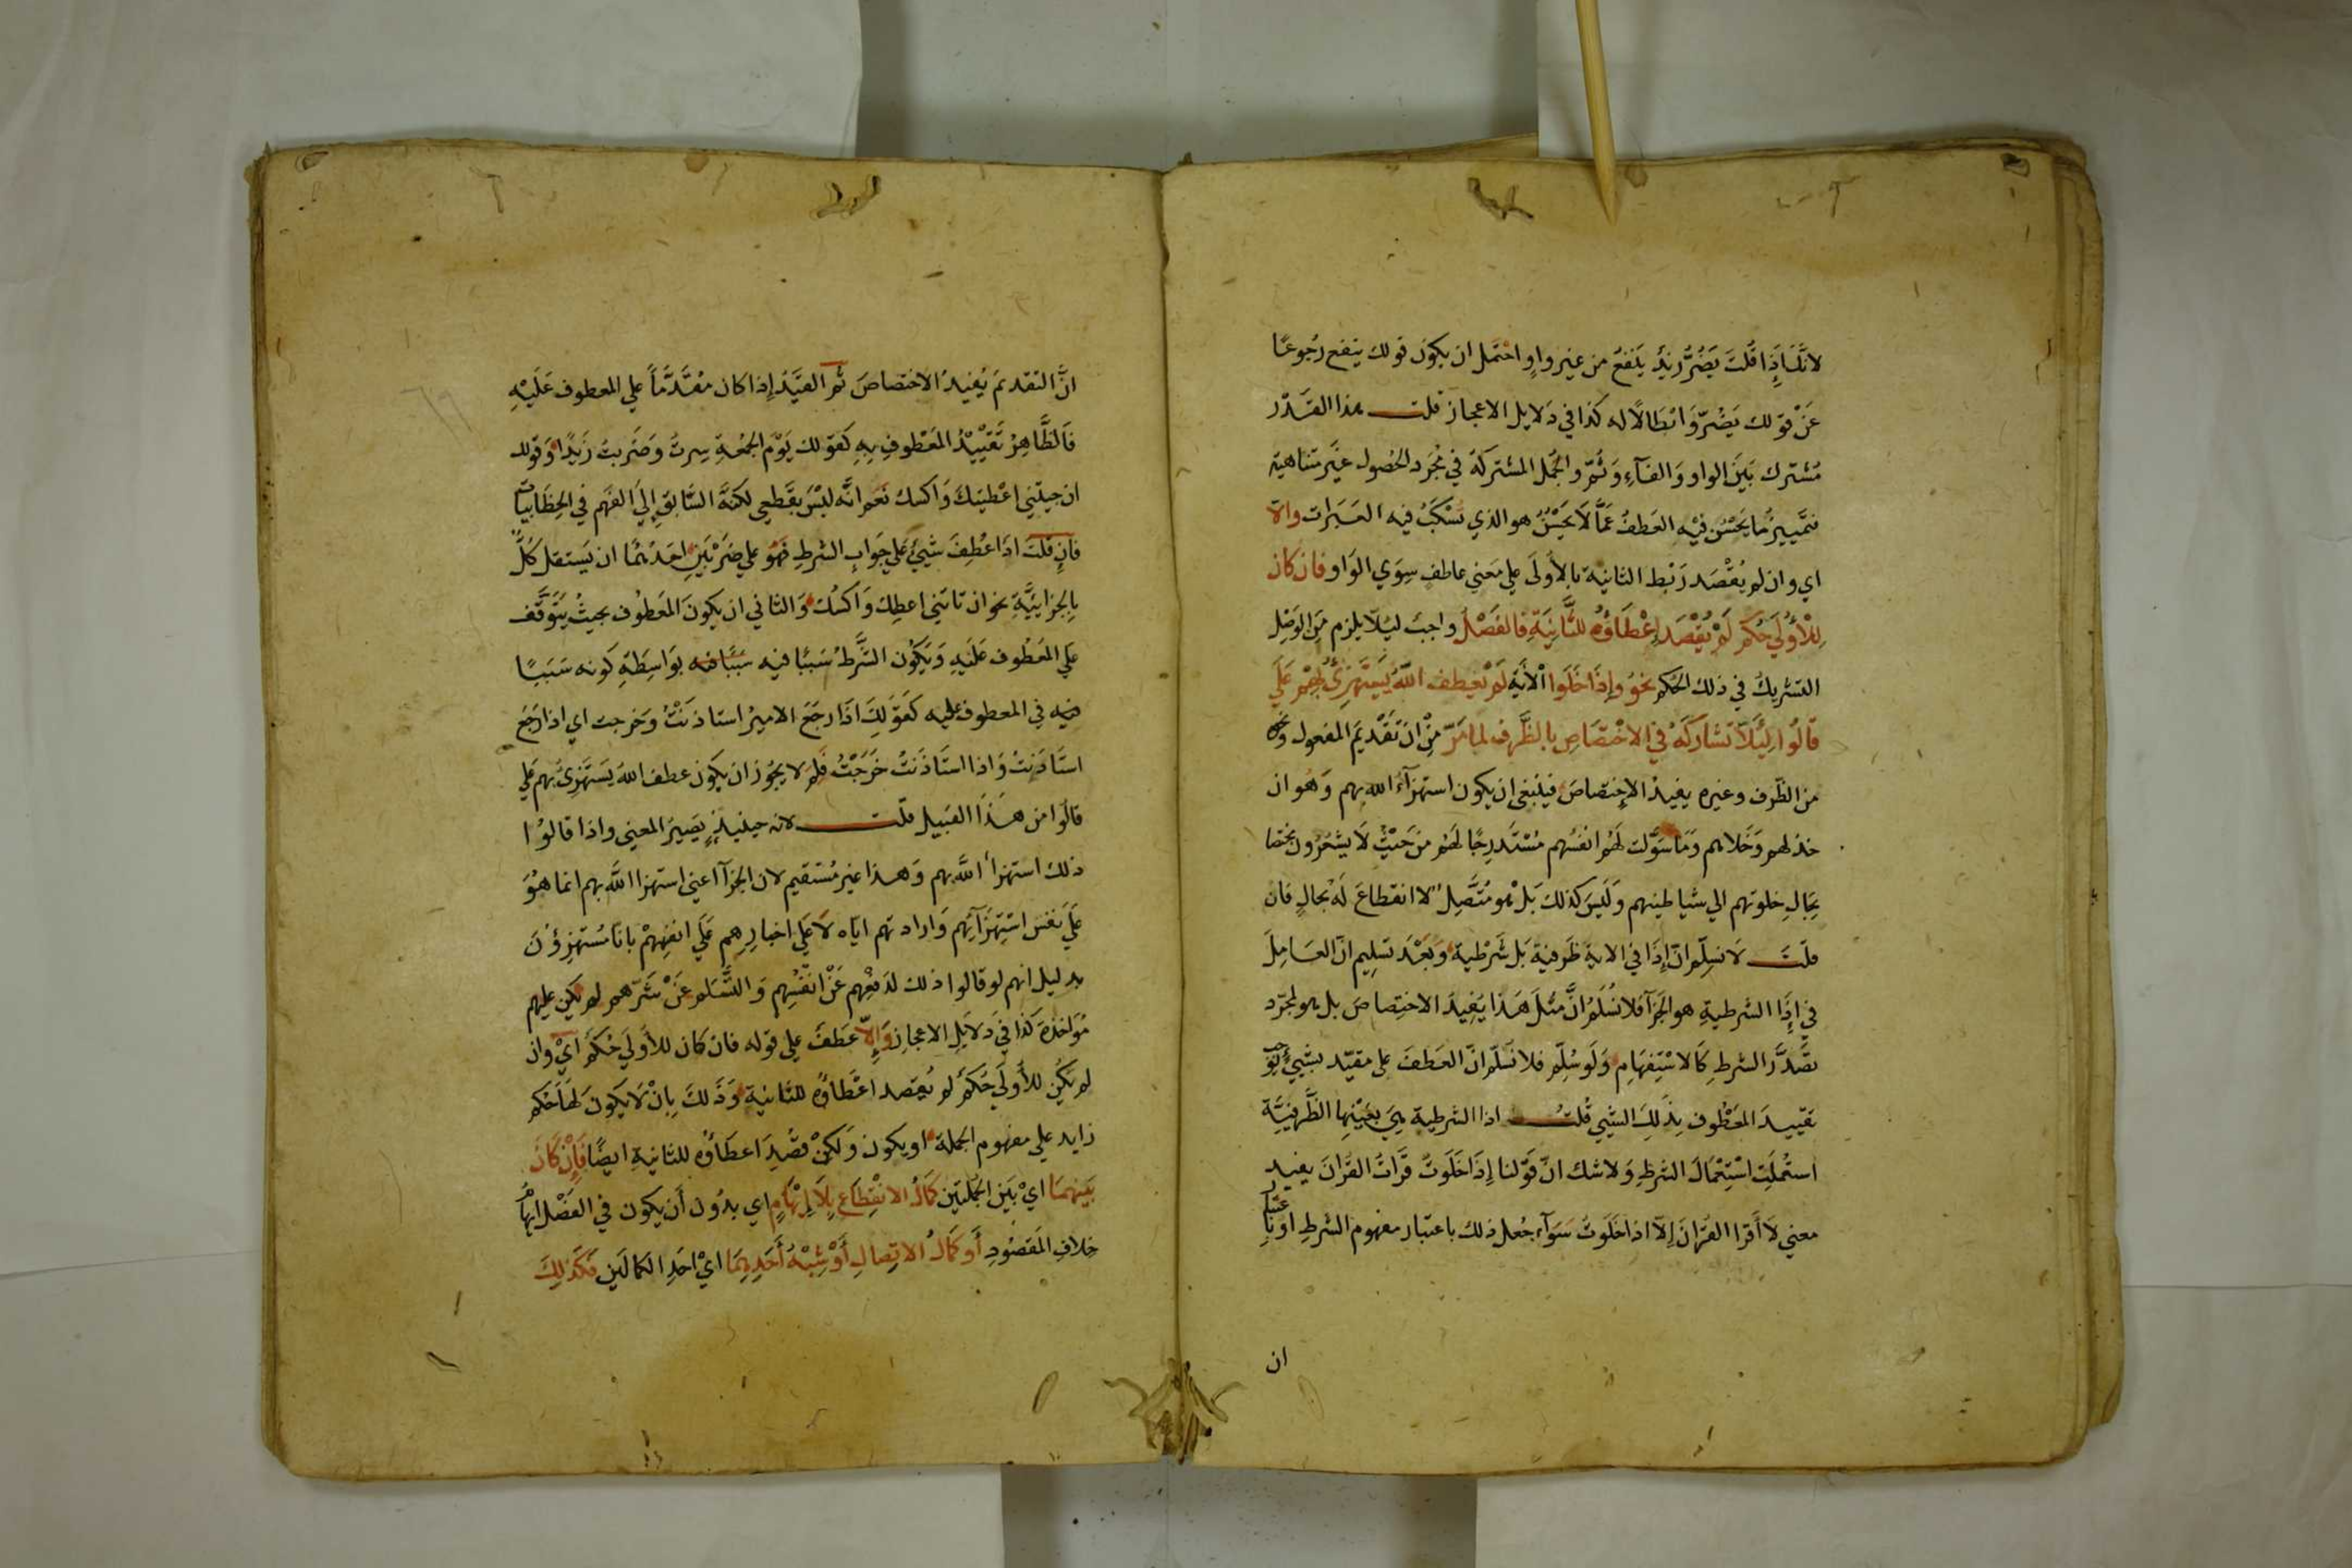 لانك اذا قلت يضر زيد ينفع من غير واو احتمل ان يكون قولك ينفع رجوعا
عن قولك يضر وابطالا له كذا في دلايل الاعجاز قلت هذا القدر
مشترك بين الواو والفآء وثم والجمل المشتركة في مجرد الحصول غير متناهية
فتمييز ما يحسن فيه العطف عما لا يحسن هو الذي تسكب فيه العبرات والا
اي وان لم يقصد ربط الثانية بالاولى علي معني عاطف سوي الواو فان كان
للأولي حكم لم يقصد إعطاؤه للثانية فالفصل واجب ليلا يلزم من الوصل
التشريك في ذلك الحكم نحو وإذا خلوا الآية لم يعطف الله يستهزئ بهم علي
قالوا ليلا تشاركه في الاختصاص بالظرف لما مر من ان تقديم المفعول ونحوه
من الظرف وغيره يفيد الاختصاص فينبغي ان يكون استهزآء الله بهم وهو ان
خذلهم وخلاهم وما سولت لهم انفسهم مستدرجا لهم من حيث لا يشعرون مختصا
بحال خلوتهم الي شياطينهم وليس كذلك بل هو متصل لا انقطاع له بحال فان
قلت لا نسلم ان إذا في الاية ظرفية بل شرطية وبعد تسليم ان العامل
في إذا الشرطية هو الجزآ فلا نسلم ان مثل هذا يفيد الاختصاص بل هو لمجرد
تصدر الشرط كالاستفهام ولو سلم فلا نسلم ان العطف على مقيد بشيئ يوجب
تقييد المعطوف بذلك الشيي قلت اذا الشرطية هي بعينها الظرفية
استعملت استعمال الشرط ولا شك ان قولنا إذا خلوت قرات القران يفيد
معني لا أقرا القران إلا اذا خلوت سوآء جعل ذلك باعتبار مفهوم الشرط او باعتبار
ان
ان التقديم يفيد الاختصاص ثم القيد إذا كان مقدما علي المعطوف عليه
فالظاهر تقييد المعطوف به كقولك يوم الجمعة سرت وضربت زيدا وقولك
ان جيتني اعطيتك واكسك نعم انه ليس بقطعي لكنه السابق إلي الفهم في الخطابيات
فان قلت اذا عطف شيئ علي جواب الشرط فهو علي ضربين احدهما ان يستقل كل
بالجزايية نحو ان تاتني اعطك واكسك والثاني ان يكون المعطوف بحيث يتوقف
علي المعطوف عليه ويكون الشرط سببا فيه بواسطة كونه سببا
فيه في المعطوف عليه كقولك اذا رجع الامير استاذنت وخرجت اي اذا رجع
استاذنت واذا استاذنت خرجت فلم لا يجوز ان يكون عطف الله يستهزئ بهم علي
قالوا من هذا القبيل قلت لانه حينيذ يصير المعني واذا قالوا
ذلك استهزأ الله بهم وهذا غير مستقيم لان الجزآ اعني استهزا الله بهم انما هو
علي نفس استهزآئهم وارادتهم اياه لا علي اخبارهم علي انفسهم بانا مستهزؤن
بدليل انهم لو قالوا ذلك لدفعهم عن انفسهم والتسلم عن شرهم لم يكن عليهم
مؤاخذة كذا في دلايل الاعجاز وإلا عطف علي قوله فان كان للأولي حكم اي وان
لم يكن للأولي حكم لم يقصد اعطاؤه للثانية وذلك بان لا يكون لها حكم
زايد علي مفهوم الجملة او يكون ولكن قصد اعطاؤه للثانية ايضا فإن كان
بينهما اي بين الجملتين كمال الانقطاع بلا إيهام اي بدون أن يكون في الفصل ايهام
خلاف المقصود أو كمال الاتصال أو شبه أحدهما اي احد الكمالين فكذلك